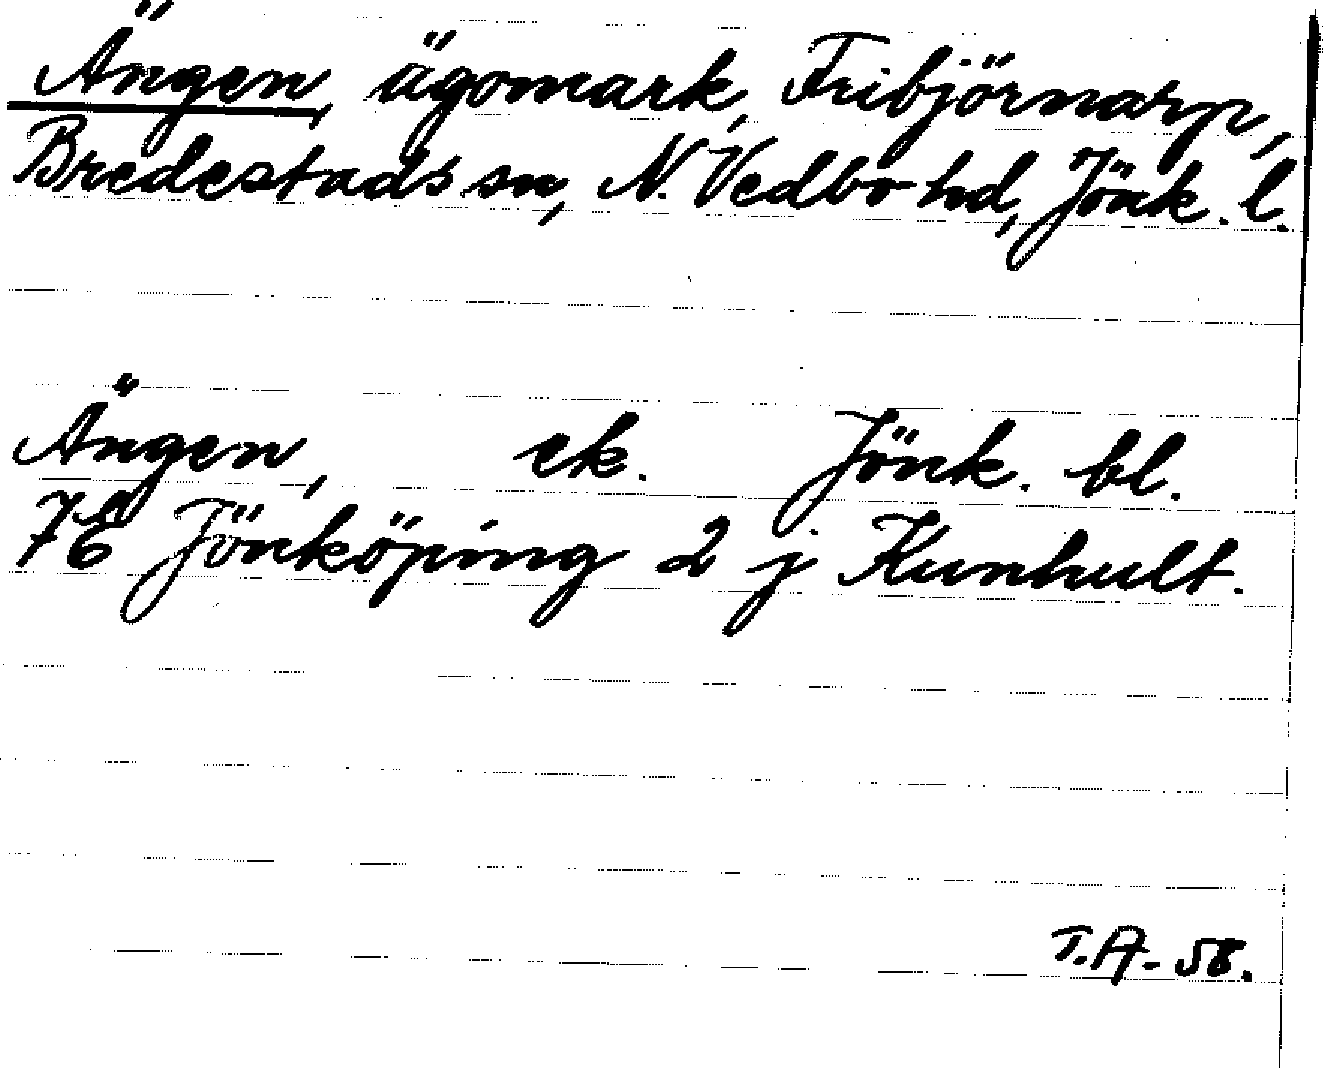 Ängen, ägomark, Fribjörnarp,
Bredestads sn, N. Vedbo hd, Jönk. l.
Ängen, ek. Jönk. bl.
76 Jönköping 2 j Kunhult.
T.A. 58.